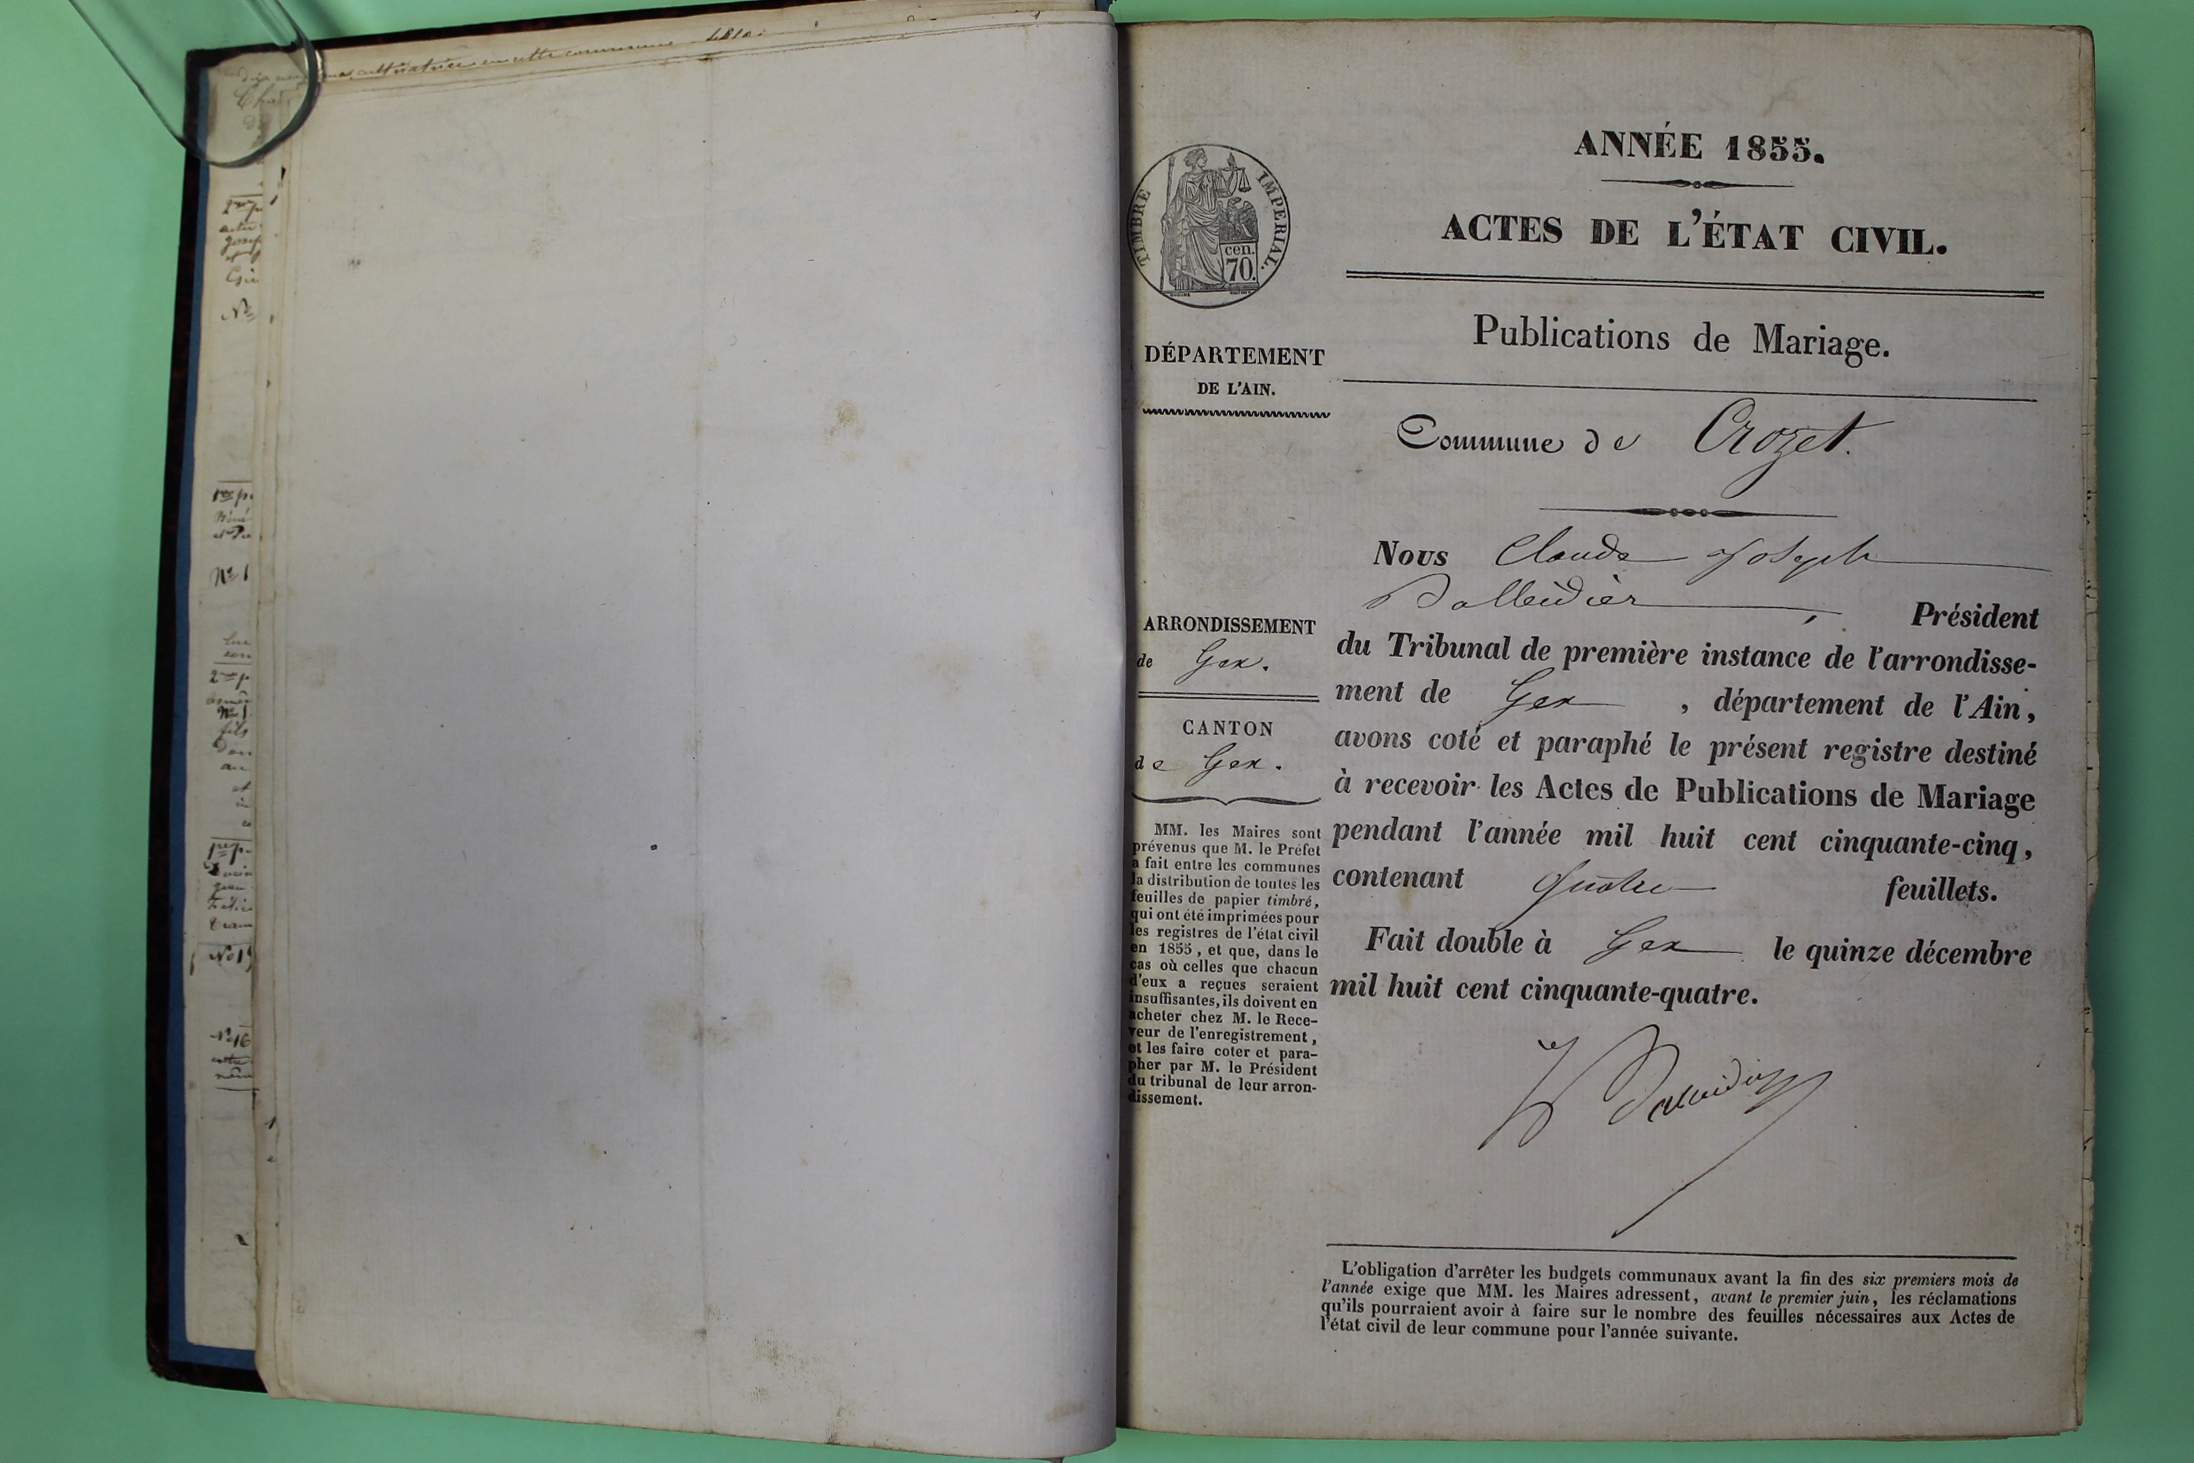 ANNÉE 1855.
ACTES DE L'ÉTAT CIVIL.
Publications de Mariage.
Commune de Crozet.
TIMBRE IMPERIAL.
cen.
70.
DÉPARTEMENT
DE L'AIN.
ARRONDISSEMENT
de Gex.
CANTON
de Gex.
MM. les Maires sont
prévenus que M. le Préfet
a fait entre les communes
la distribution de toutes les
feuilles de papier timbré,
qui ont été imprimées pour
les registres de l'état civil
en 1855, et que, dans le
cas où celles que chacun
d'eux a reçues seraient
insuffisantes, ils doivent en
acheter chez M. le Rece-
veur de l'enregistrement,
et les faire coter et para-
pher par M. le Président
du tribunal de leur arron-
dissement.
Nous Claude Joseph
Président
du Tribunal de première instance de l'arrondisse-
ment de Gex, département de l'Ain,
avons coté et paraphé le présent registre destiné
à recevoir les Actes de Publications de Mariage
pendant l'année mil huit cent cinquante-cinq,
contenant quatre feuillets.
Fait double à Gex le quinze décembre
mil huit cent cinquante-quatre.
L'obligation d'arrêter les budgets communaux avant la fin des six premiers mois de
l'année exige que MM. les Maires adressent, avant le premier juin, les réclamations
qu'ils pourraient avoir à faire sur le nombre des feuilles nécessaires aux Actes de
l'état civil de leur commune pour l'année suivante.